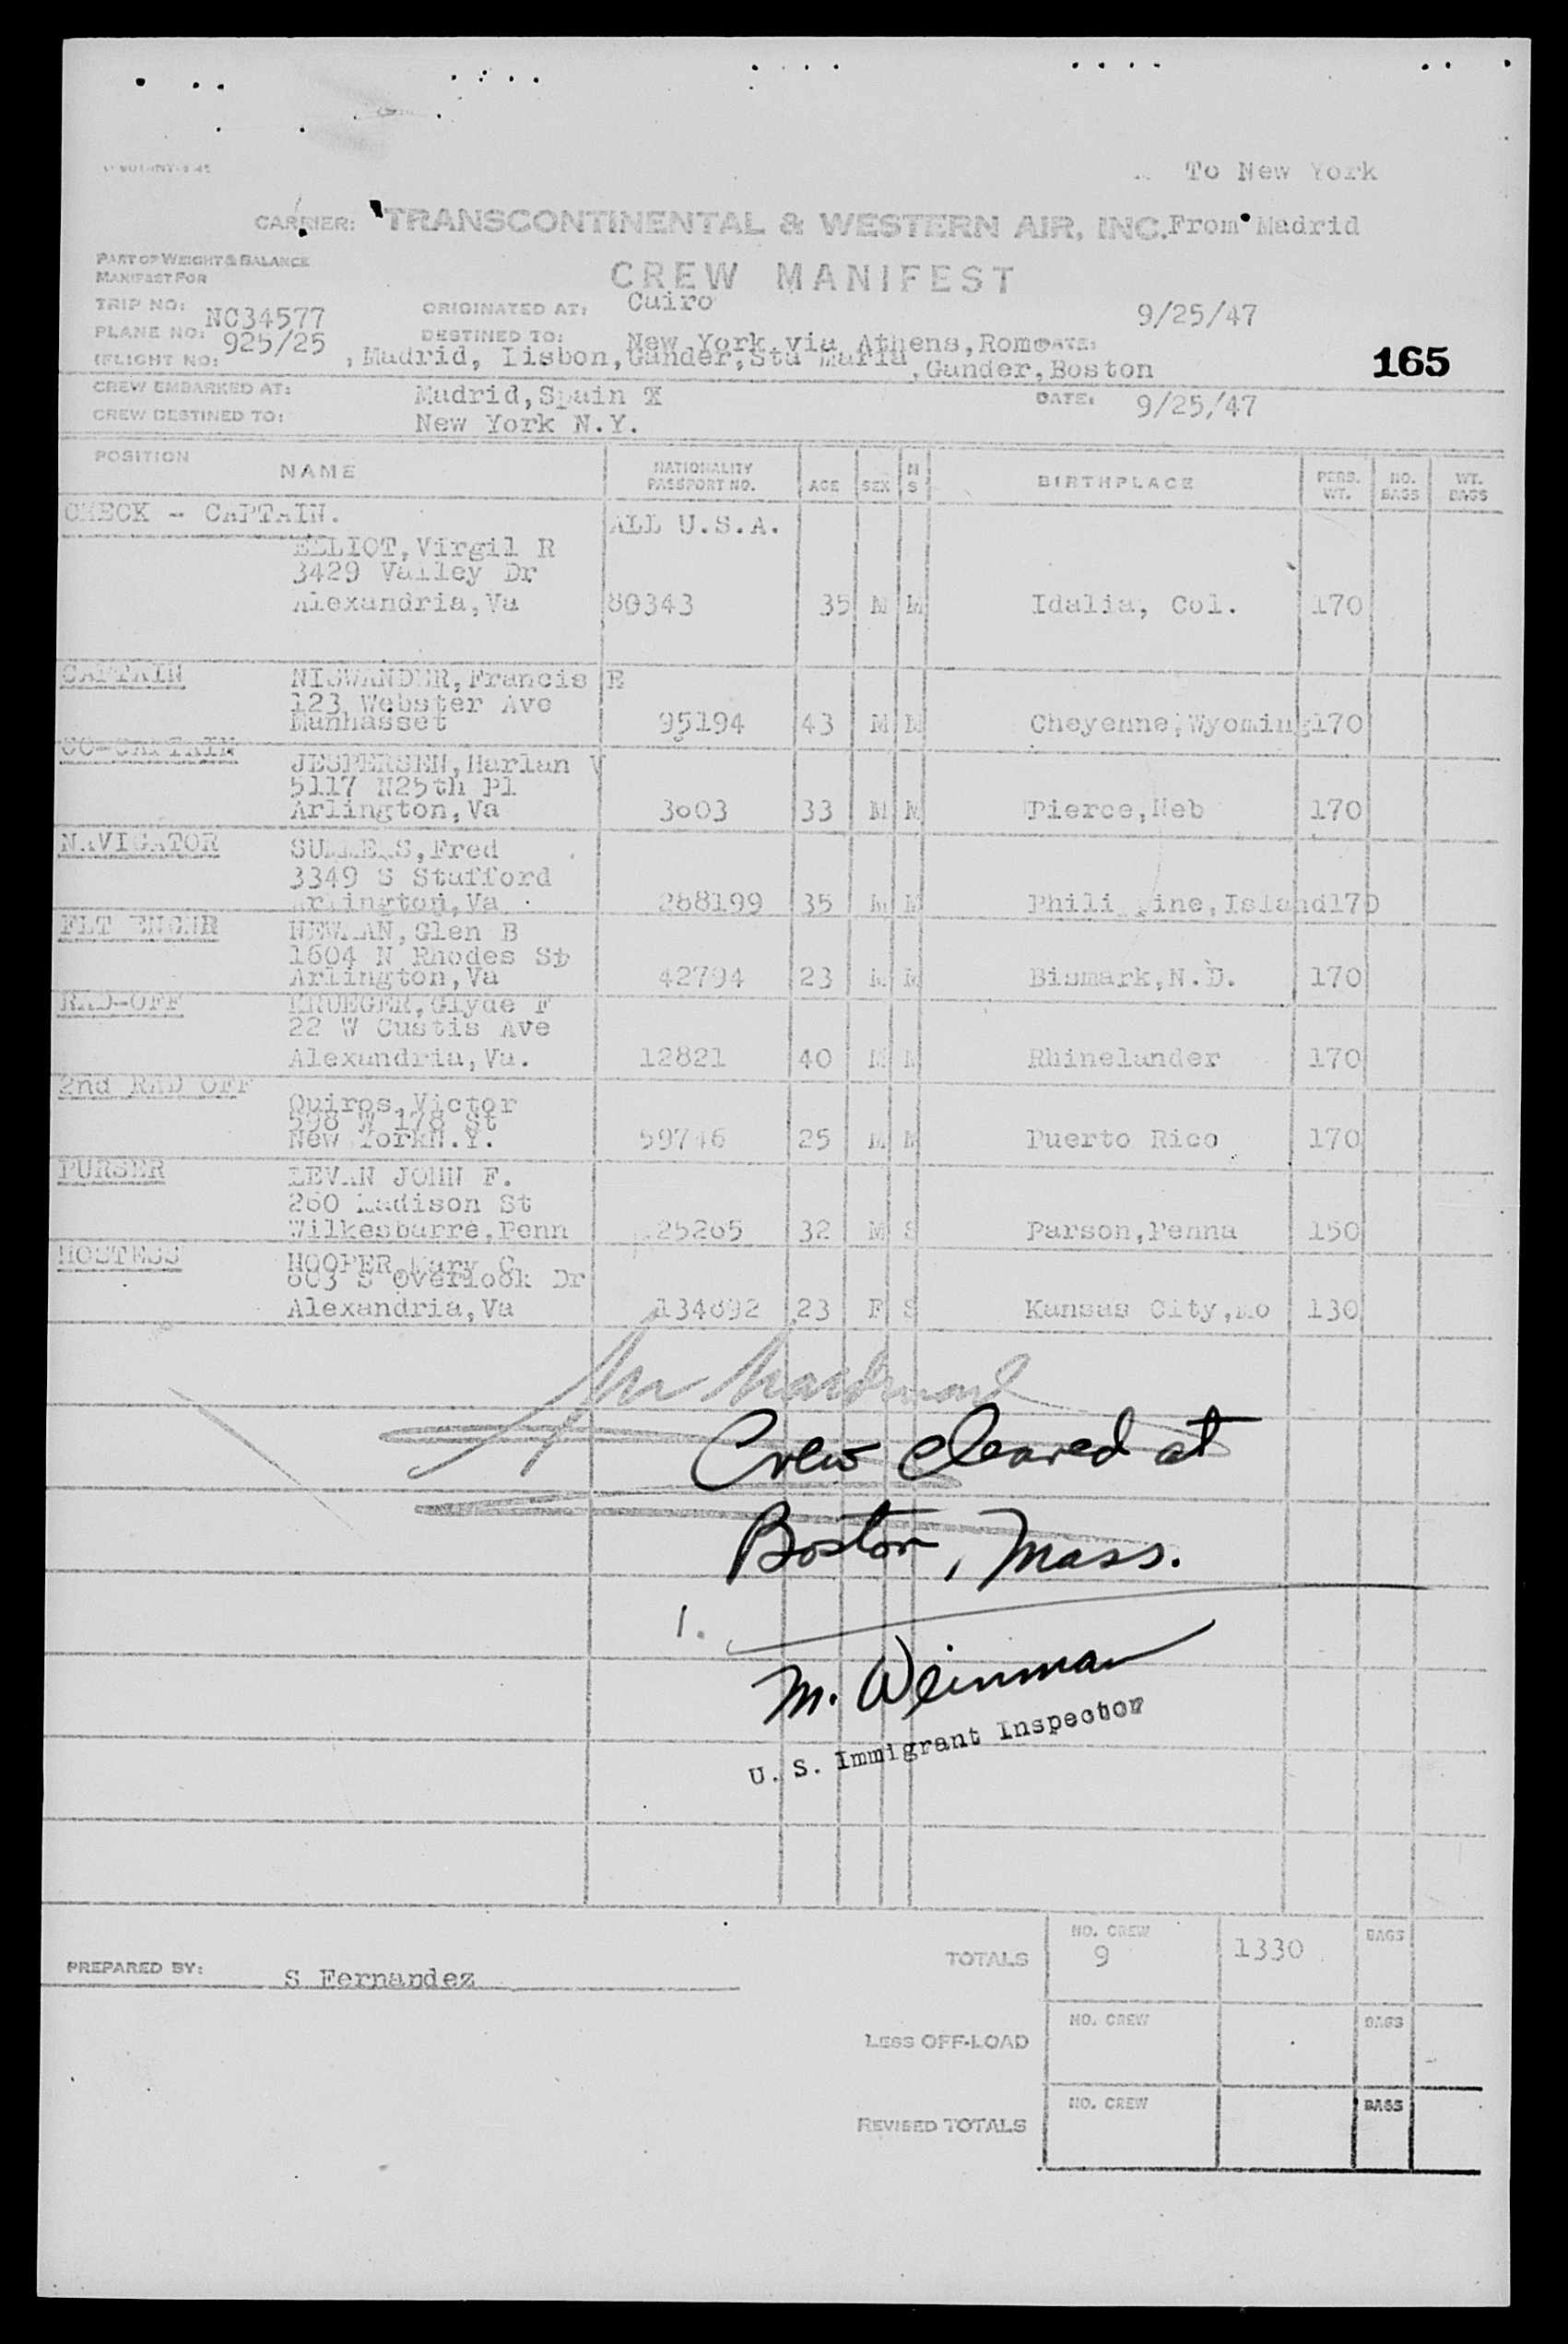 To New York
CARRIER: TRANSCONTINENTAL & WESTERN AIR, INC. From Madrid
PART OF WEIGHT & BALANCE
MANIFEST FOR
CREW MANIFEST
TRIP NO: NC34577 ORIGINATED AT: Cairo 9/25/47
PLANE NO: 925/25 DESTINED TO: New York via Athens, Rome DATE:
(FLIGHT NO: , Madrid, Lisbon, Gander, Sta Maria, Gander, Boston 165
CREW EMBARKED AT: Madrid, Spain DATE: 9/25/47
CREW DESTINED TO: New York N.Y.
POSITION NAME NATIONALITY PASSPORT NO. AGE SEX M S BIRTHPLACE PERS. WT. NO. BAGS WT. BAGS
CHECK - CAPTAIN. ALL U.S.A.
ELLIOT, Virgil R
3429 Valley Dr
Alexandria, Va 80343 35 M M Idalia, Col. 170
CAPTAIN NISWANDER, Francis E
123 Webster Ave
Manhasset 95194 43 M M Cheyenne, Wyoming 170
CO-CAPTAIN
JESPERSEN, Harlan V
5117 N25th Pl
Arlington, Va 3603 33 M M Pierce, Neb 170
NAVIGATOR SUMMERS, Fred
3349 S Stafford
Arlington, Va 288199 35 M M Philippine, Island 170
FLT ENGNR NEWMAN, Glen B
1604 N Rhodes St
Arlington, Va 42794 23 M M Bismark, N.D. 170
RAD-OFF KRUEGER, Clyde F
22 W Custis Ave
Alexandria, Va. 12821 40 M M Rhinelander 170
2nd RAD OFF
Quiros, Victor
598 W 178 St
New York N.Y. 59746 25 M M Puerto Rico 170
PURSER LEVAN JOHN F.
260 Madison St
Wilkesbarre, Penn 25265 32 M S Parson, Penna 150
HOSTESS HOOPER, Mary C
603 S Overlook Dr
Alexandria, Va 134692 23 F S Kansas City, Mo 130
Crew cleared at
Boston, Mass.
1.
M. Weinman
U. S. Immigrant Inspector
TOTALS NO. CREW 9 1330 BAGS
PREPARED BY: S Fernandez
LESS OFF-LOAD NO. CREW BAGS
REVISED TOTALS NO. CREW BAGS